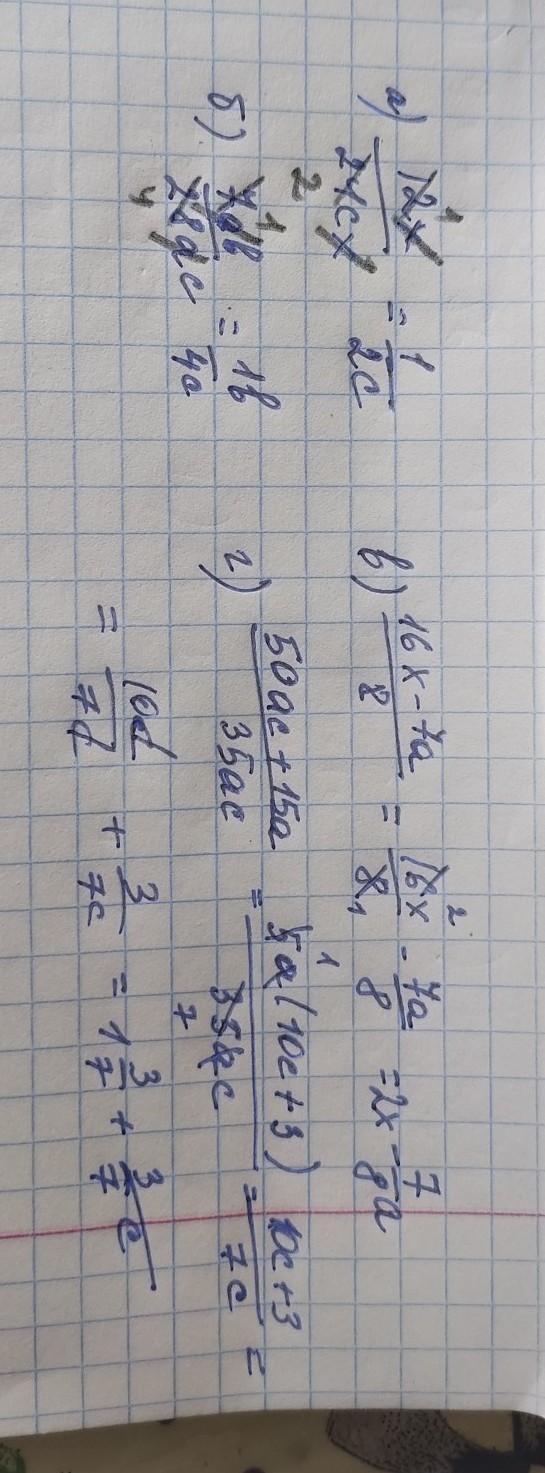 а) 12x/24cx = 1/2c
б) 7ab/28ac = 1b/4c
в) 16x-7a/8 = 16x/8 - 7a/8 = 2x - 7/8a
г) 50ac+15a/35ac = 5a(10c+3)/35ac = 10c+3/7c =
= 10c/7c + 3/7c = 1 3/7 + 3/7c